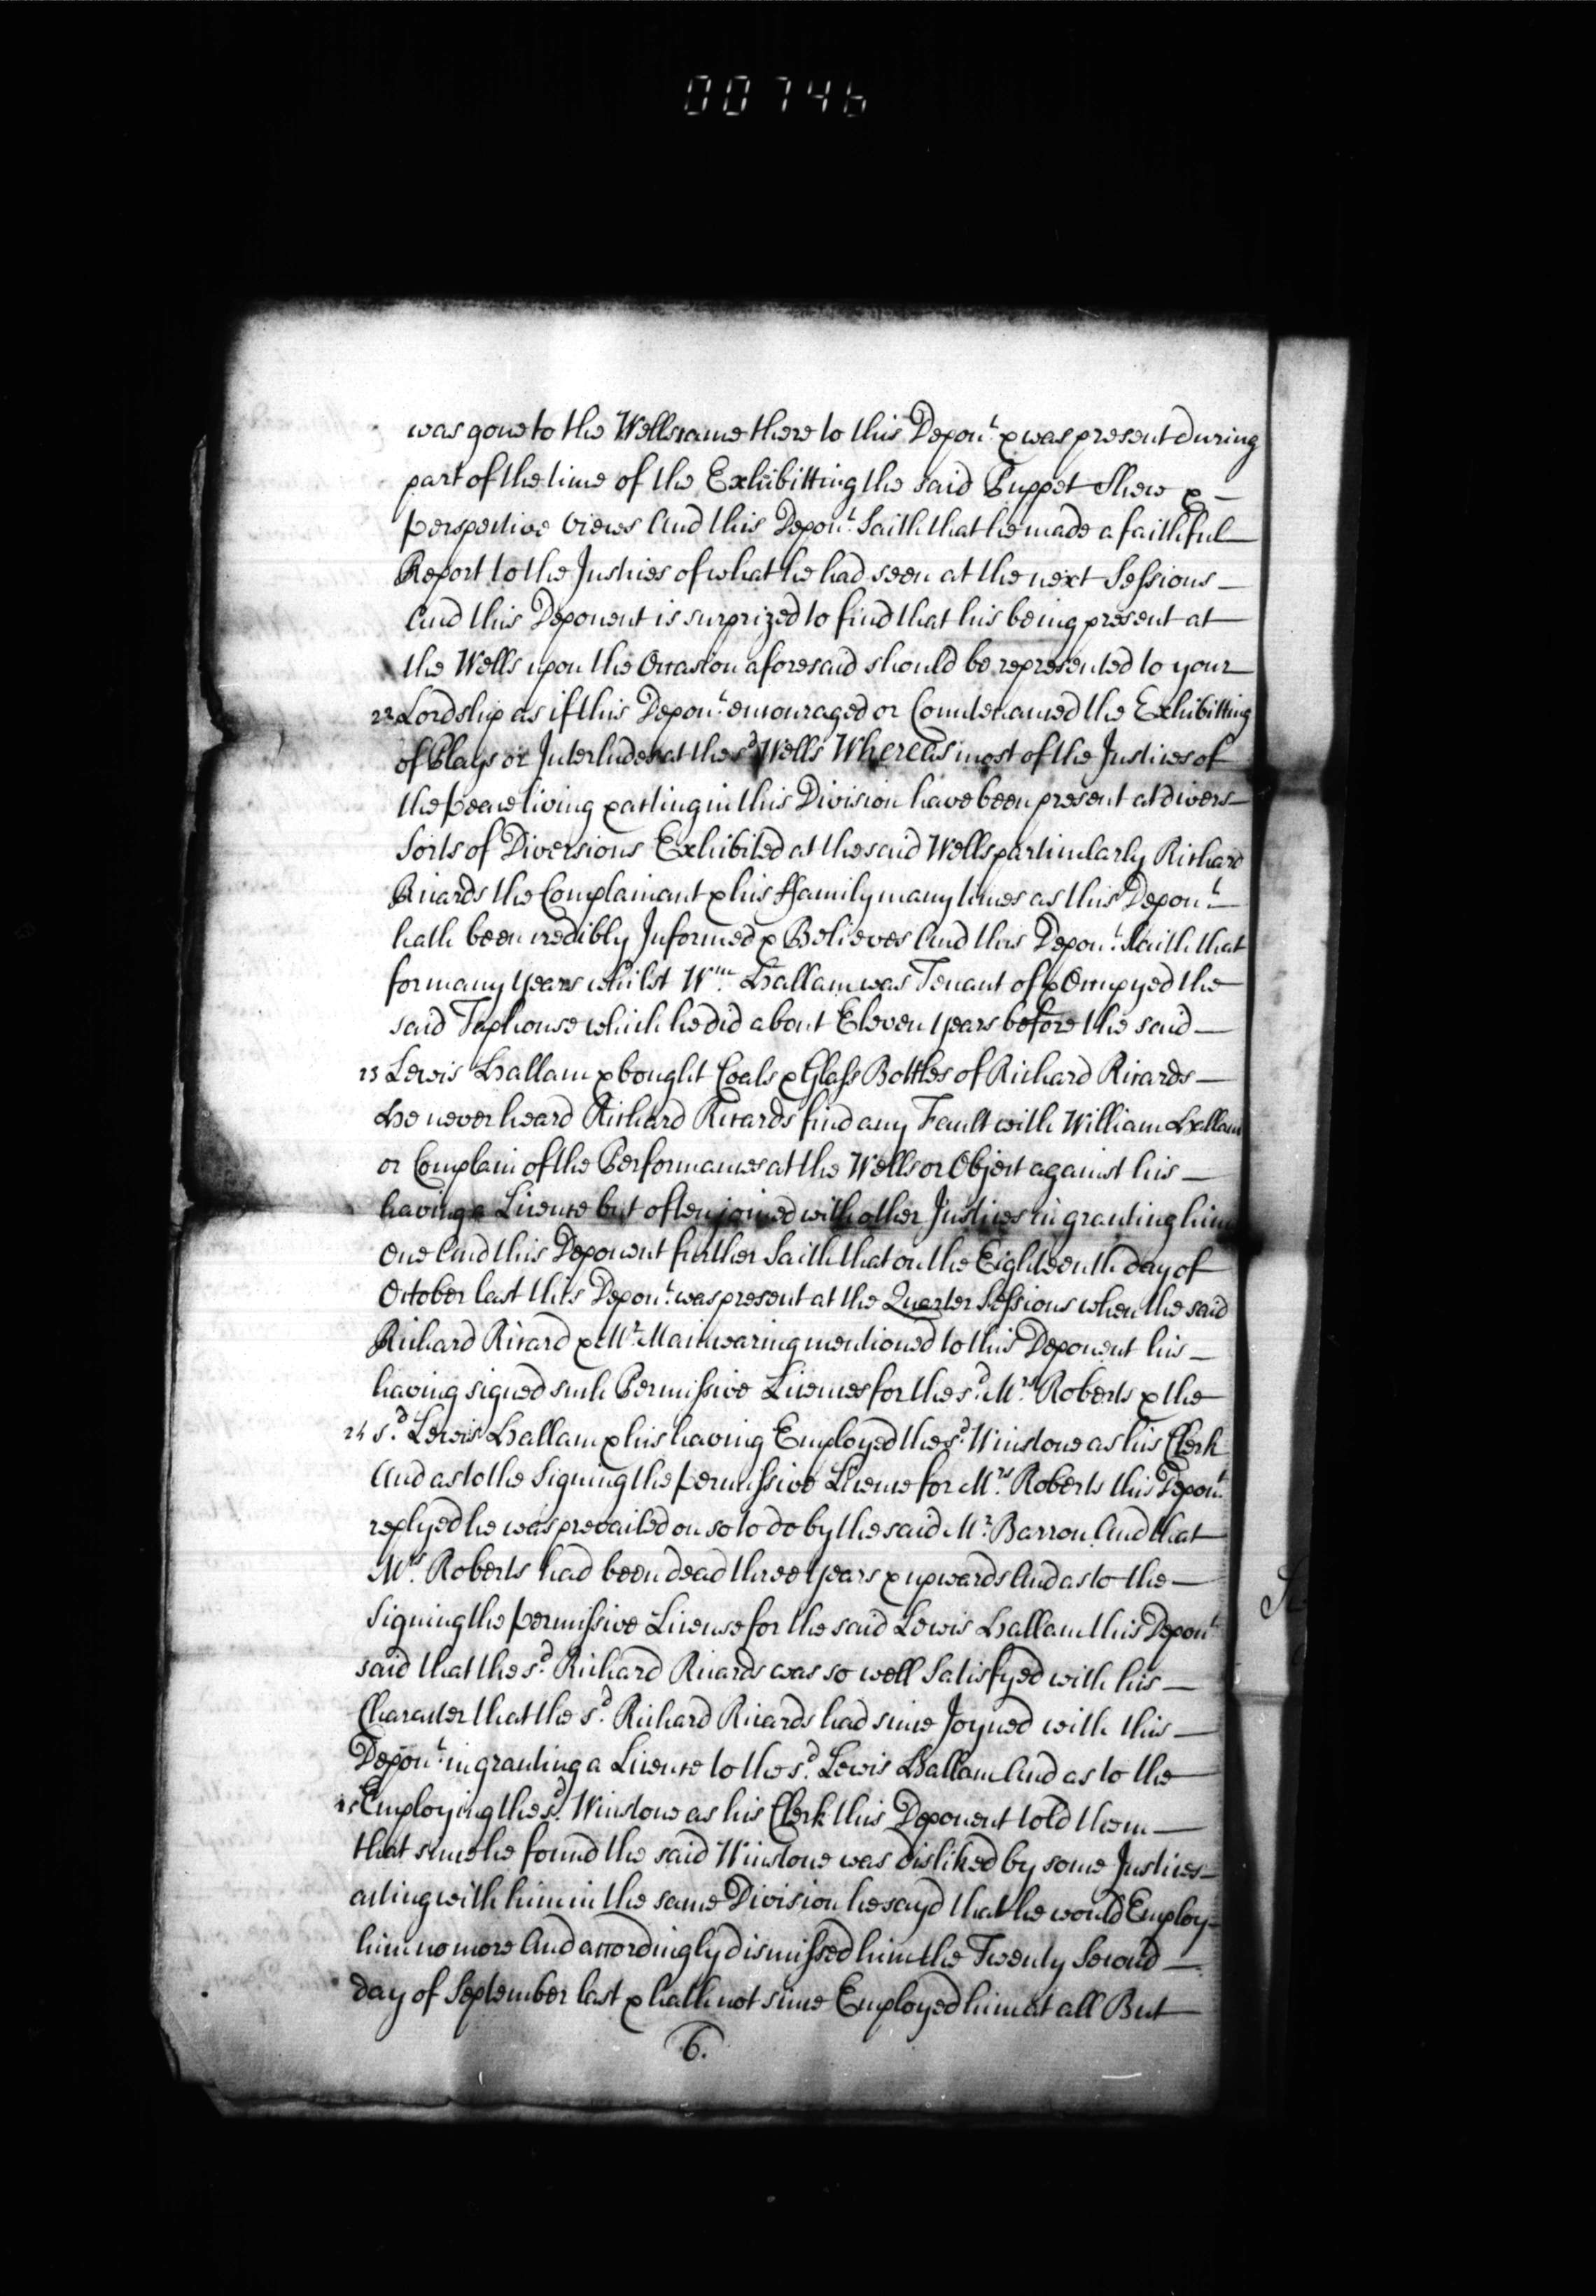 00746
was gone to the Wells came there to this Depon.t & was present during
part of the time of the Exhibitting the said Puppet Shew & –
perspective Views And this Depon.t Saith that he made a faithful
Report to the Justices of what he had seen at the next Sessions –
And this Deponent is surprized to find that his being present at
the Wells upon the Occasion aforesaid should be represented to your
22 Lordship as if this Depon.t encouraged or Countenanced the Exhibitting
of Plays or Interludes at the s.d Wells Whereas most of the Justices of
the peace living & acting in this Division have been present at divers
Sorts of Diversions Exhibited at the said Wells particularly Richard
Ricards the Complainant & his Family many times as this Depon.t
hath been credibly Informed & Believes And this Depon.t Saith that
for many years whilst W.m Hallam was Tenant of & Occupyed the
said Taphouse which he did about Eleven years before the said –
23 Lewis Hallam & bought Coals & Glass Bottles of Richard Ricards –
He never heard Richard Ricards find any Fault with William Hallam
or Complain of the Performances at the Wells or Object against his –
having a License but often joined with other Justices in granting him
One And this Deponent further Saith that on the Eighteenth day of
October last this Depon.t was present at the Quarter Sessions when the said
Richard Ricard & M.r Mainwaring mentioned to this Deponent his –
having signed such Permissive Licenses for the s.d M.rs Roberts & the
24 s.d Lewis Hallam & his having Employed the s.d Winstone as his Clerk
And as to the Signing the permissive License for M.rs Roberts this Depon.t
replyed he was prevailed on so to do by the said M.r Barron And that
M.rs Roberts had been dead three years & upwards And as to the –
Signing the permissive License for the said Lewis Hallam this Depon.t
said that the s.d Richard Ricards was so well Satisfyed with his –
Character that the s.d Richard Ricards had since Joyned with this –
Depon.t in granting a License to the s.d Lewis Hallam And as to the
25 Employing the s.d Winstone as his Clerk this Deponent told them –
that since he found the said Winstone was disliked by some Justices
acting with him in the same Division he sayd that he would Employ
him no more And accordingly dismissed him the Twenty Second –
day of September last & hath not since Employed him at all But
6.